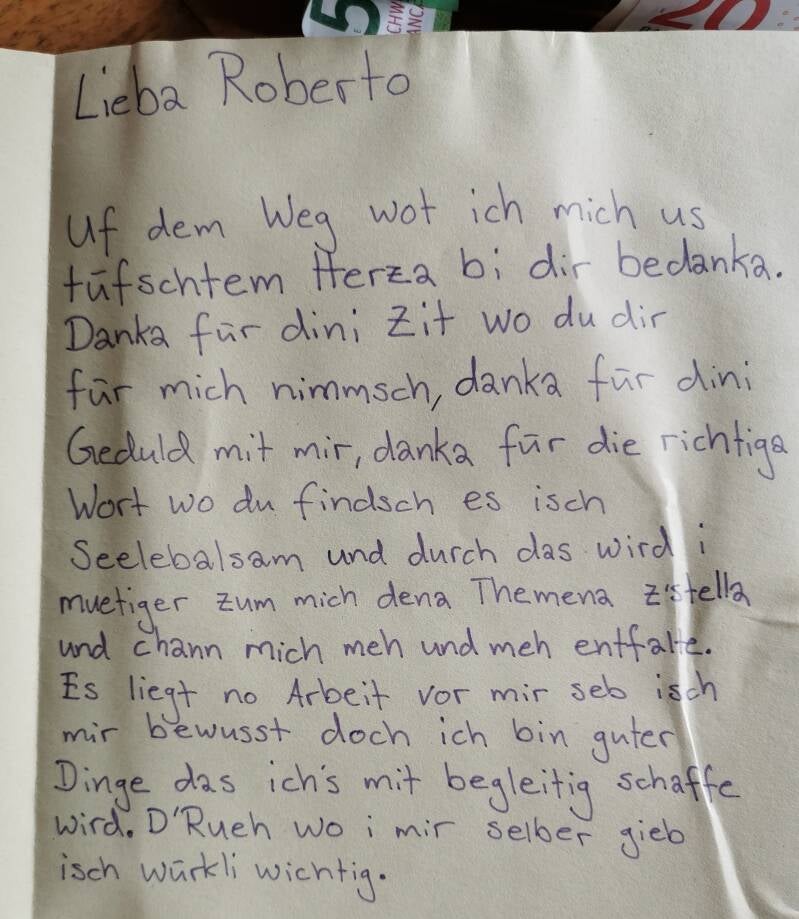 5
CHW
ANC
20
Lieba Roberto
Uf dem Weg wot ich mich us
tüfschtem Herza bi dir bedanka.
Danka für dini Zit wo du dir
für mich nimmsch, danka für dini
Geduld mit mir, danka für die richtiga
Wort wo du findsch es isch
Seelebalsam und durch das wird i
muetiger zum mich dena Themena z'stella
und chann mich meh und meh entfalte.
Es liegt no Arbeit vor mir seb isch
mir bewusst doch ich bin guter
Dinge das ich's mit begleitig schaffe
wird. D'Rueh wo i mir selber gieb
isch würkli wichtig.